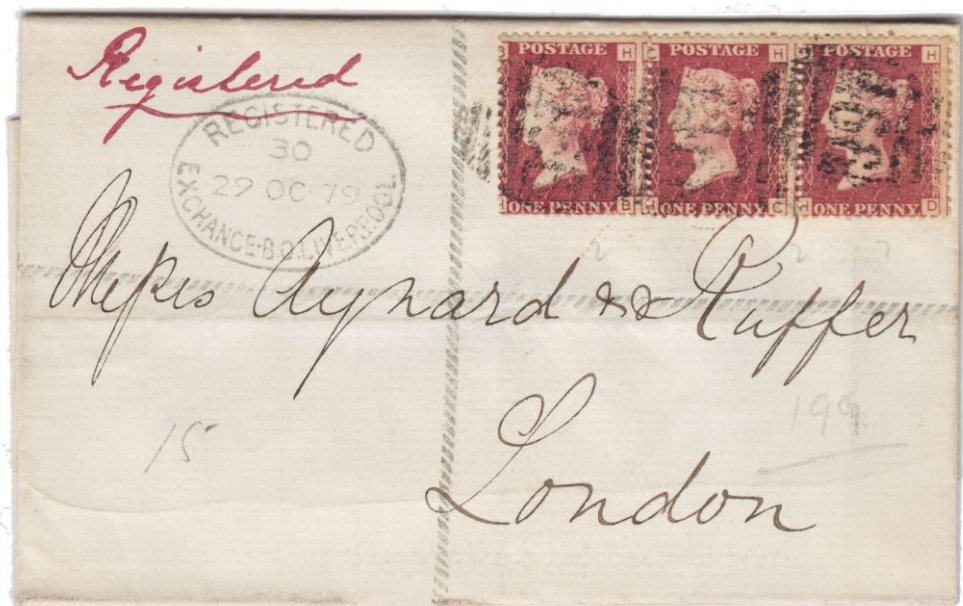 Registered
REGISTERED
30
29 OC 79
EXCHANGE·B.O.LIVERPOOL
POSTAGE H POSTAGE H POSTAGE H
ONE PENNY B ONE PENNY C ONE PENNY D
Messrs Aynard & Ruffer
London
15
199